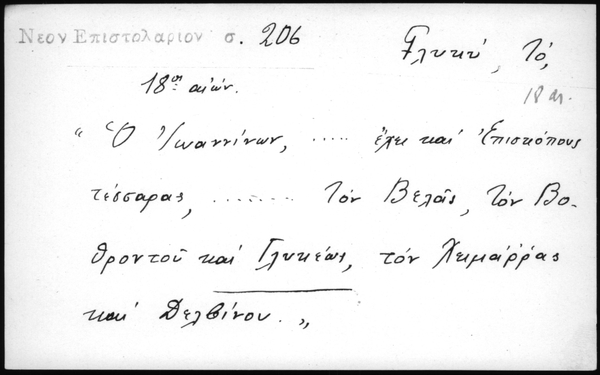 Νεον Επιστολαριον σ. 206
Γλυκύ, Τό,
18ος αἰών.
18 αι.
" Ὁ Ἰωαννίνων, ..... ἔχει καί Ἐπισκόπους
τέσσαρας, ........ τόν Βελᾶς, τόν Βο-
θροντοῦ καί Γλυκέως, τόν Χειμάῤῥας
καί Δελβίνου. „